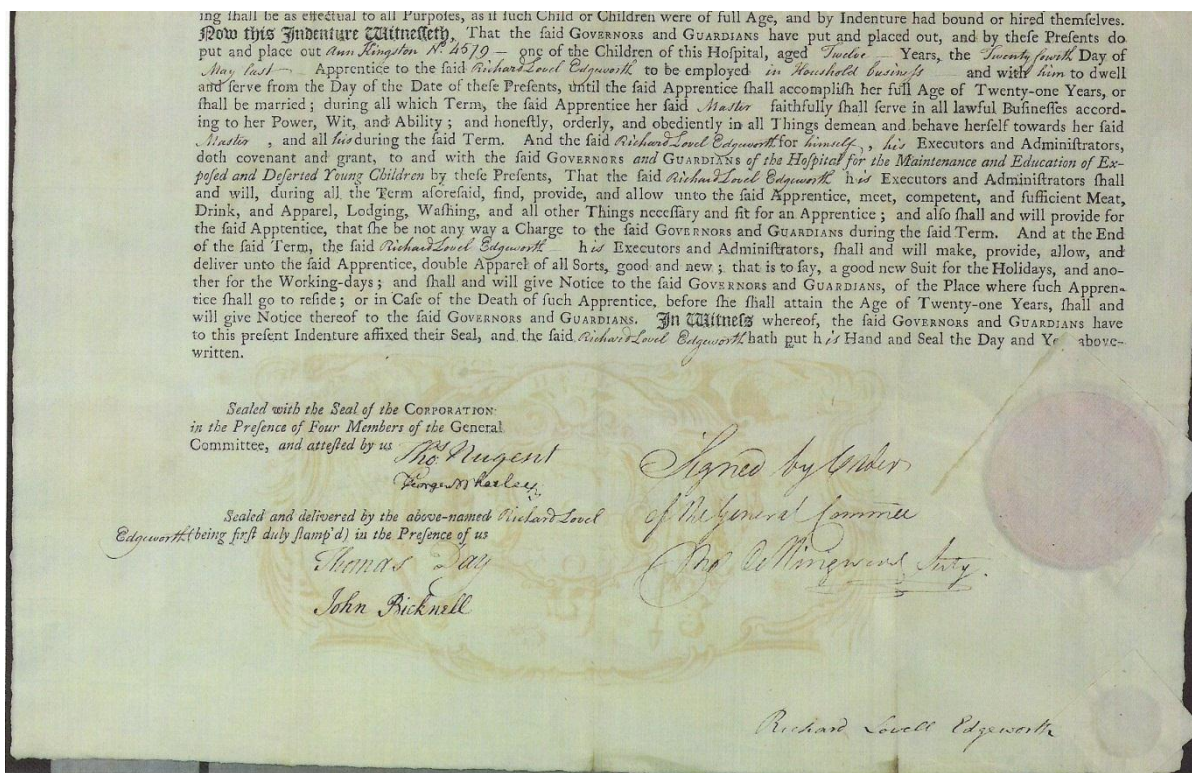 ing ſhall be as effectual to all Purpoſes, as if ſuch Child or Children were of full Age, and by Indenture had bound or hired themſelves.
Now this Indenture Witneſſeth, That the ſaid GOVERNORS and GUARDIANS have put and placed out, and by theſe Preſents do
put and place out Ann Kingston No. 4579 — one of the Children of this Hoſpital, aged Twelve — Years, the Twenty fourth Day of
May last — Apprentice to the ſaid Richard Lovel Edgeworth to be employed in Houshold business — and with him to dwell
and ſerve from the Day of the Date of theſe Preſents, until the ſaid Apprentice ſhall accompliſh her full Age of Twenty-one Years, or
ſhall be married; during all which Term, the ſaid Apprentice her ſaid Master faithfully ſhall ſerve in all lawful Buſineſſes accord-
ing to her Power, Wit, and Ability; and honeſtly, orderly, and obediently in all Things demean and behave herſelf towards her ſaid
Master , and all his during the ſaid Term. And the ſaid Richard Lovel Edgeworth for himself, his Executors and Adminiſtrators,
doth covenant and grant, to and with the ſaid GOVERNORS and GUARDIANS of the Hoſpital for the Maintenance and Education of Ex-
poſed and Deſerted Young Children by theſe Preſents, That the ſaid Richard Lovel Edgeworth his Executors and Adminiſtrators ſhall
and will, during all the Term aforeſaid, find, provide, and allow unto the ſaid Apprentice, meet, competent, and ſufficient Meat,
Drink, and Apparel, Lodging, Waſhing, and all other Things neceſſary and fit for an Apprentice; and alſo ſhall and will provide for
the ſaid Apprentice, that ſhe be not any way a Charge to the ſaid GOVERNORS and GUARDIANS during the ſaid Term. And at the End
of the ſaid Term, the ſaid Richard Lovel Edgeworth — his Executors and Adminiſtrators, ſhall and will make, provide, allow, and
deliver unto the ſaid Apprentice, double Apparel of all Sorts, good and new; that is to ſay, a good new Suit for the Holidays, and ano-
ther for the Working-days; and ſhall and will give Notice to the ſaid GOVERNORS and GUARDIANS, of the Place where ſuch Appren-
tice ſhall go to reſide; or in Caſe of the Death of ſuch Apprentice, before ſhe ſhall attain the Age of Twenty-one Years, ſhall and
will give Notice thereof to the ſaid GOVERNORS and GUARDIANS. In Witneſs whereof, the ſaid GOVERNORS and GUARDIANS have
to this preſent Indenture affixed their Seal, and the ſaid Richard Lovel Edgeworth hath put his Hand and Seal the Day and Ye above-
written.
Sealed with the Seal of the CORPORATION
in the Preſence of Four Members of the General
Committee, and atteſted by us
Thos Nugent
George Whatley
Sealed and delivered by the above-named Richard Lovel
Edgeworth (being firſt duly ſtamp'd) in the Preſence of us
Thomas Day
John Bicknell
Signed by Order
of the General Commee
Secty.
Richard Lovell Edgeworth